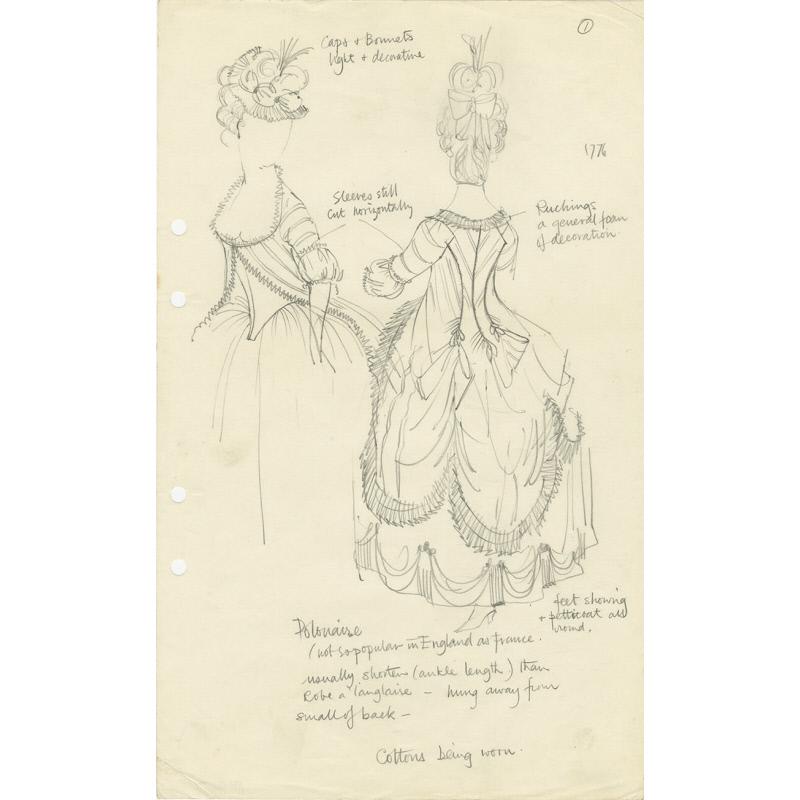 ①
Caps + Bonnets
light + decorative
1776
Sleeves still
Cut horizontally
Ruchings
a general form
of decoration.
feet showing
+ petticoat all
round.
Polonaise
(not so popular in England as France.
usually shorter (ankle length) than
Robe a l'anglaise – hung away from
small of back –
Cottons being worn.